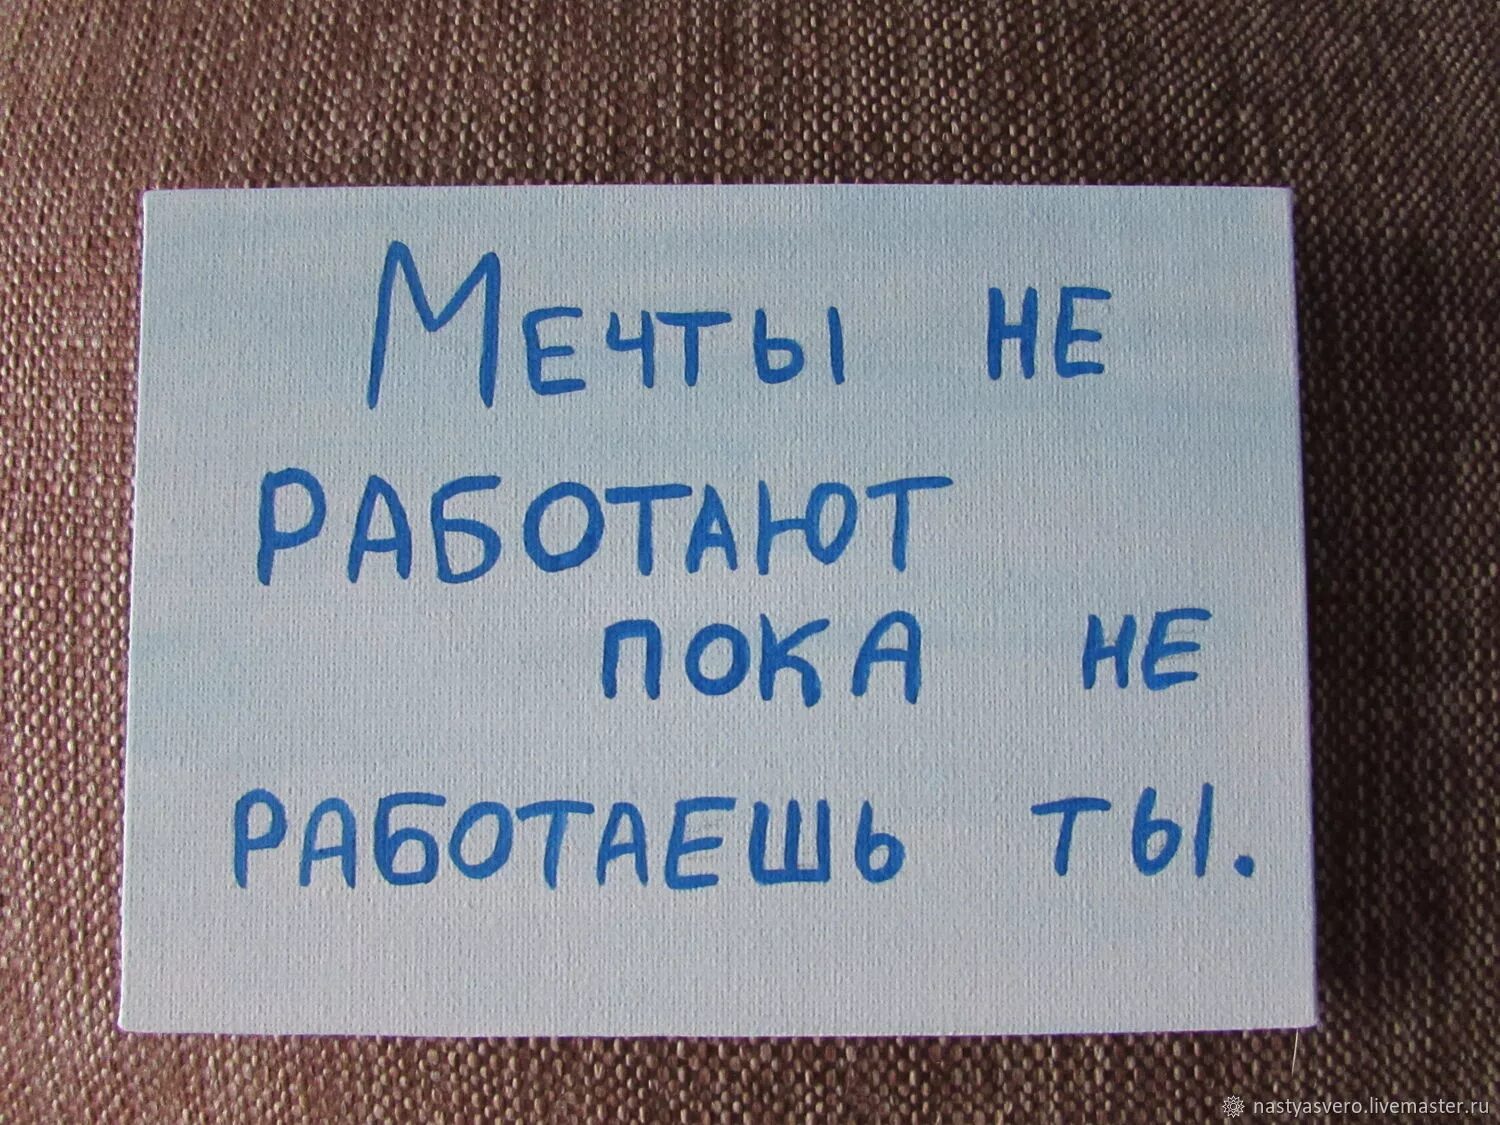 Мечты не
работают
пока не
работаешь ты.
nastyasvero.livemaster.ru